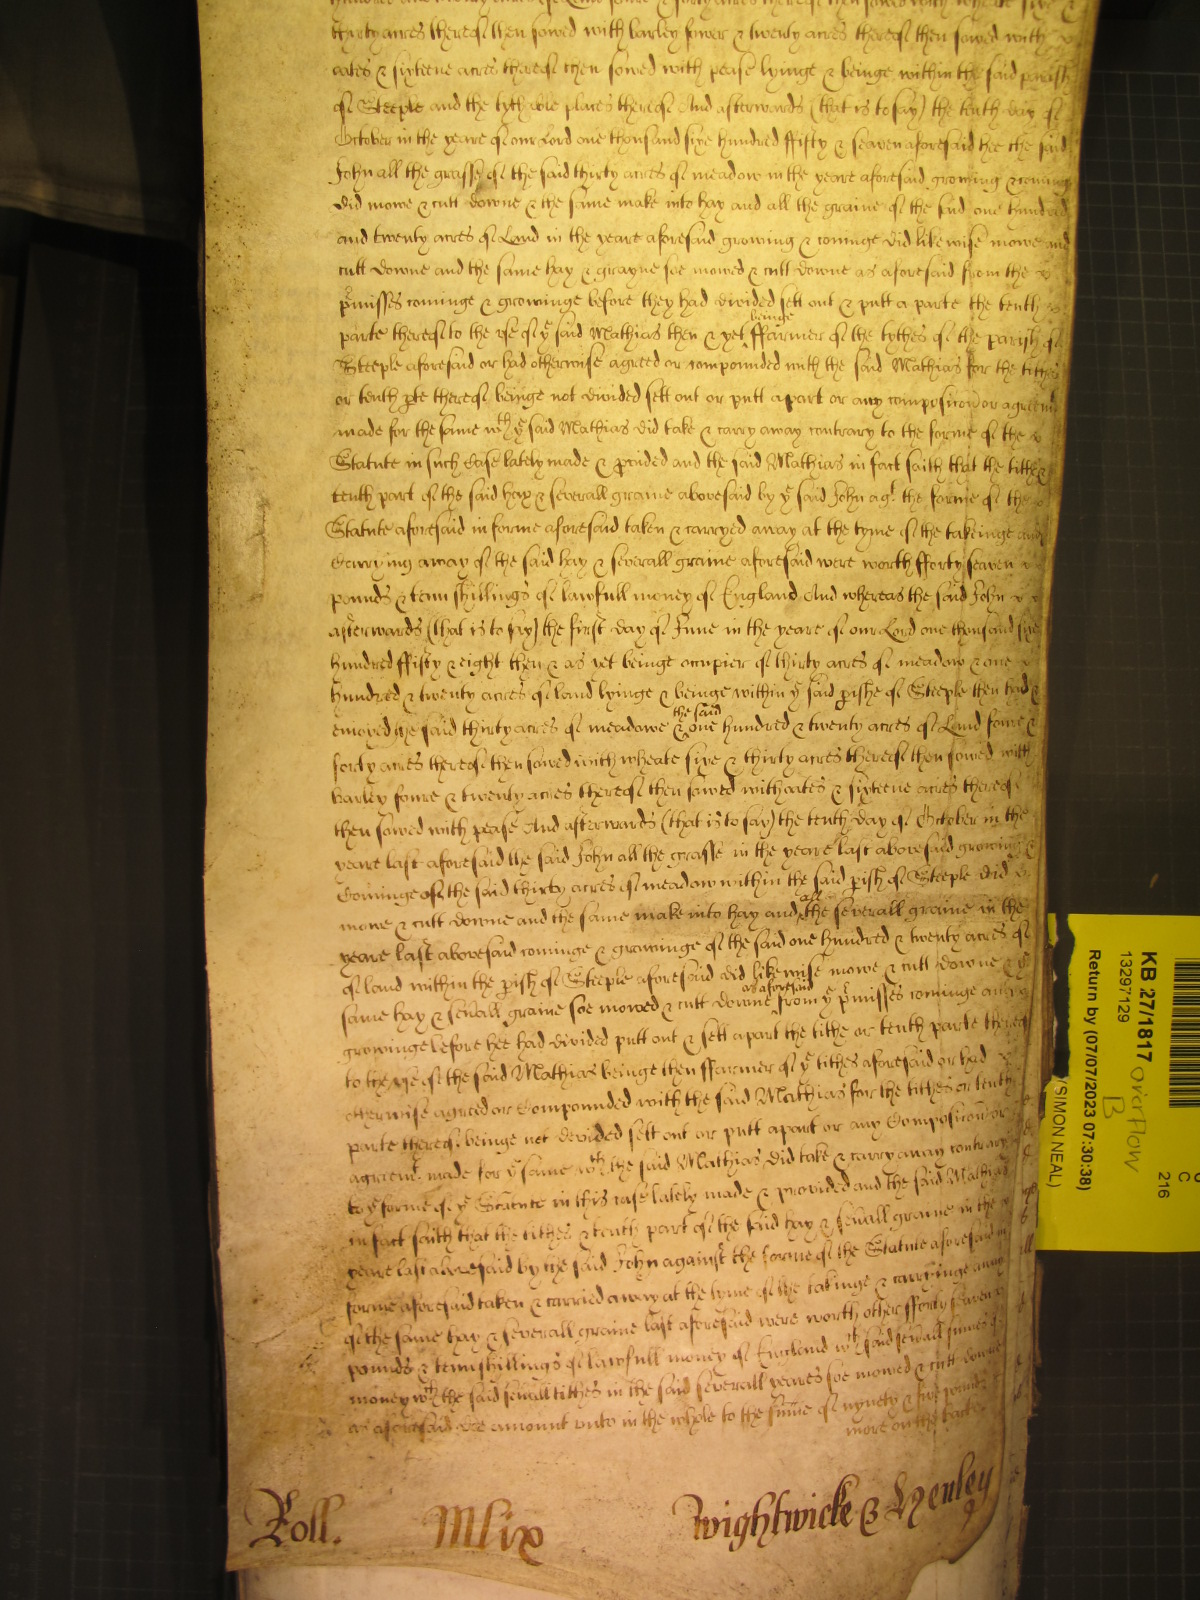 thirty acres thereof then sowed with barley fower & twenty acres thereof then sowed with
oates & sixteene acres thereof then sowed with pease lyinge & beinge within the said parish
of Steeple and the tythable places thereof And afterwards (that is to say) the tenth day of
October in the yeare of our Lord one thousand sixe hundred ffifty & seaven aforesaid hee the said
John all the grasse of the said thirty acres of meadow in the yeare aforesaid growing & coming
did mowe & cutt downe & the same make into hay and all the graine of the said one hundred
and twenty acres of Land in the yeare aforesaid growing & cominge did likewise mowe and
cutt downe and the same hay & grayne soe mowed & cutt downe as aforesaid from the
p'misses cominge & growinge before they had divided sett out & putt a parte the tenth
parte thereof to the use of ye said Mathias then & yet beinge ffarmer of the tythes of the parish of
Steeple aforesaid or had otherwise agreed or compounded with the said Mathias for the tithes
or tenth pte thereof beinge not divided sett out or putt apart or any composicon or agreemt
made for the same wth ye said Mathias did take & carry away contrary to the forme of the
Statute in such Case lately made & pvided and the said Mathias in fact saith that the tithe &
tenth part of the said hay & severall graine abovesaid by ye said John agt the forme of the
Statute aforesaid in forme aforesaid taken & carryed away at the tyme of the takeinge and
Carrying away of the said hay & severall graine aforesaid were worth fforty seaven
pounds & tenn shillings of lawfull money of England And whereas the said John
afterwards (that is to say) the first day of June in the yeare of our Lord one thousand sixe
hundred ffifty & eight then & as yet beinge occupier of thirty acres of meadow & one
hundred & twenty acres of land lyinge & beinge within ye said pishe of Steeple then had &
enioyed the said thirty acres of meadowe & the said one hundred & twenty acres of Land fowre &
forty acres thereof then sowed with wheate sixe & thirty acres thereof then sowed with
Barley foure & twenty acres thereof then sowed with oates & sixteene acres thereof
then sowed with pease And afterwards (that is to say) the tenth day of October in the
yeare last aforesaid the said John all the grasse in the yeare last abovesaid growing &
Cominge of the said thirty acres of meadow within the said pish of Steeple did
mowe & cutt downe and the same make into hay and all the severall graine in the
yeare last abovesaid cominge & growinge of the said one hundred & twenty acres of
of land within the pish of Steeple aforesaid did likewise mowe & cutt downe & ye
same hay & sevall graine soe mowed & cutt downe as aforesaid from ye p'misses cominge and
growinge before hee had divided putt out & sett apart the tithe or tenth parte thereof
to the use of the said Mathias beinge then ffarmer of ye tithes aforesaid or had
otherwise agreed or Compounded with the said Mathias for the tithes or tenth
parte thereof beinge not devided sett out or putt apart or any Composicon or
agreemt made for ye same wth the said Mathias did take & carry away contrary
to ye forme of ye Statute in this case lately made & provided and the said Mathias
in fact saith that the tithes & tenth part of the said hay & sevall graine in the
yeare last abovesaid by the said John against the forme of the Statute aforesaid in
forme aforesaid taken & carried away at the tyme of the takinge & carryinge away
of the same hay & severall graine last aforesaid were worth other fforty seaven
pounds & tenn shillings of lawfull money of England wch said sevall summes of
money wth the said sevall tithes in the said severall yeares soe mowed & cutt downe
as aforesaid doe amount unto in the whole to the summe of nynety & five pounds
more on the backe
Roll. Mlix Wightwicke & Henley
KB 27/1817 overflow
B
13297129
Return by (07/07/2023 07:30:38)
(SIMON NEAL)
C
216